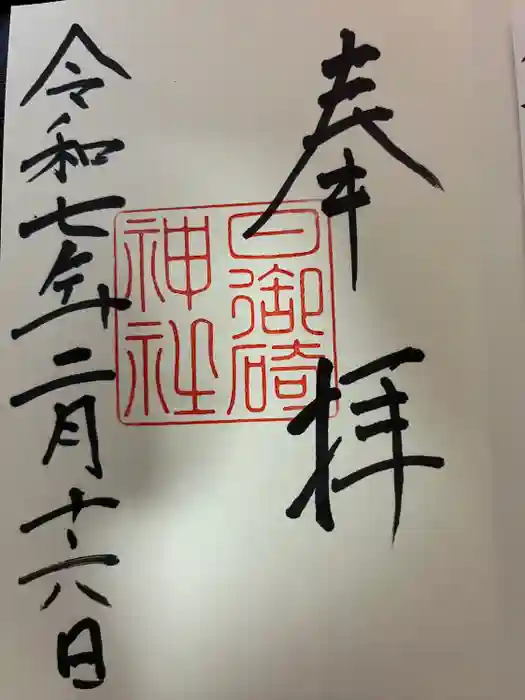 奉拝
日御碕神社
令和七年二月十六日